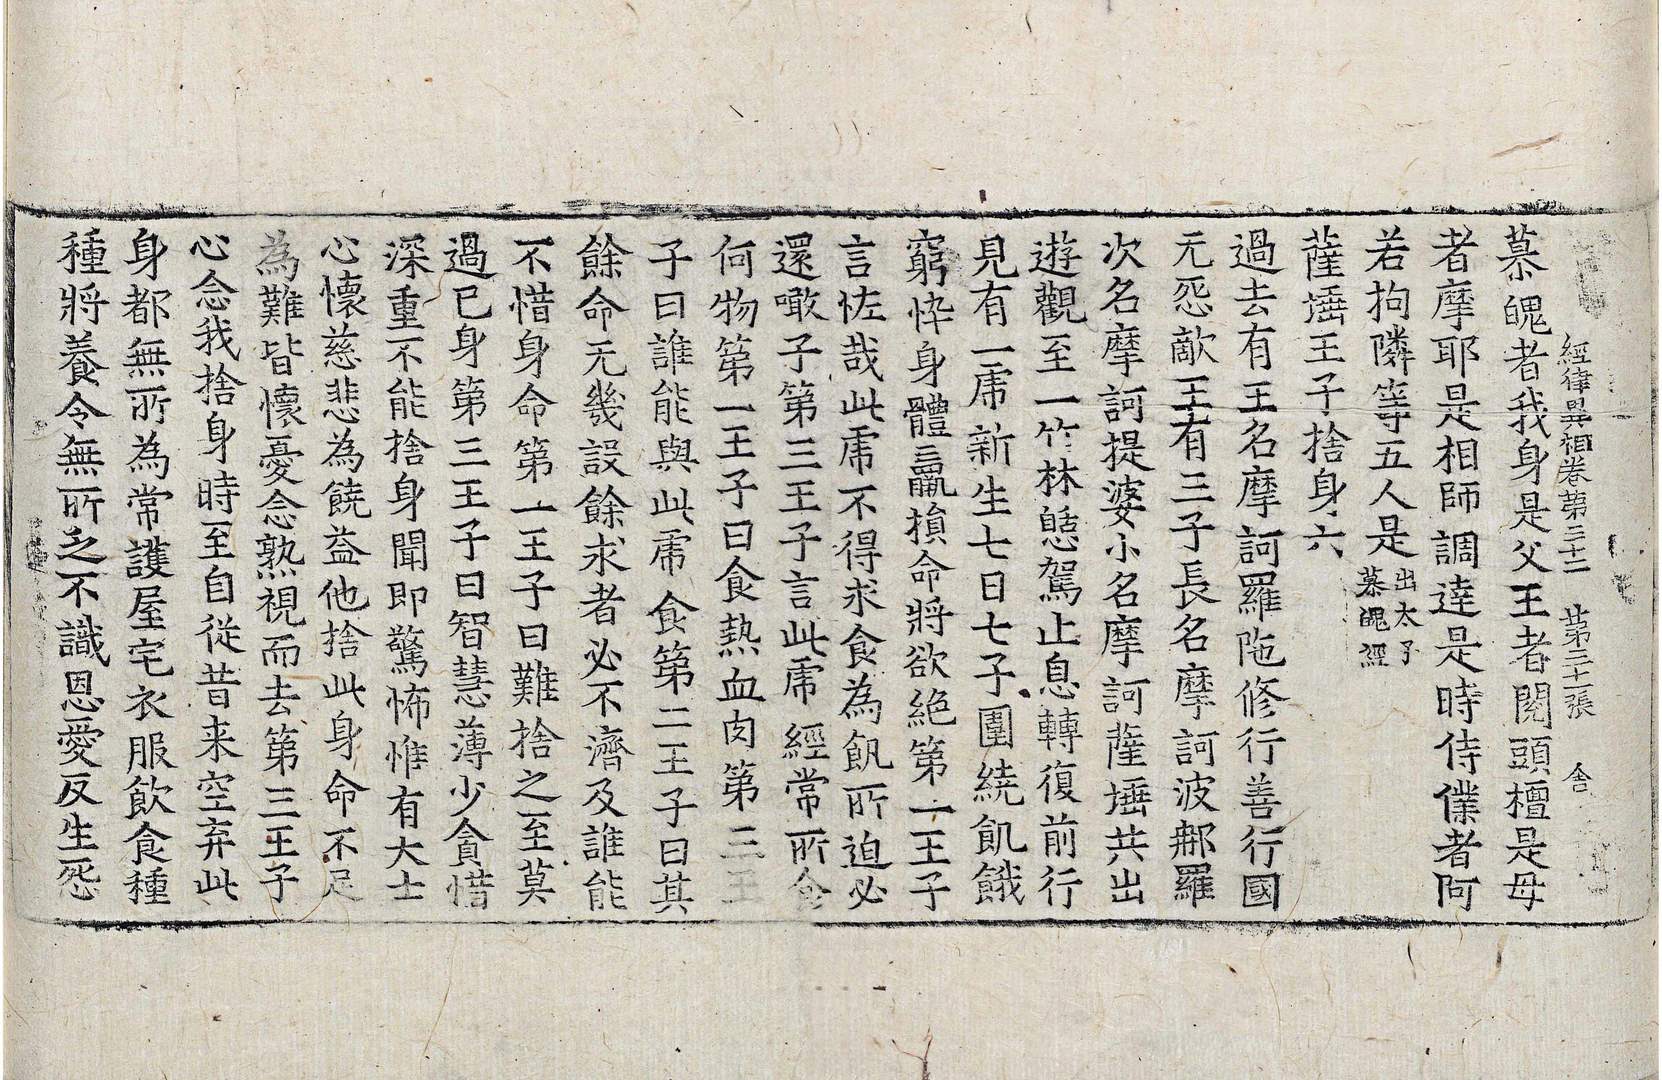 經律異相卷第三十二 第三十一張 舍
慕魄者我身是父王者閱頭檀是母
者摩耶是相師調達是時侍僕者阿
若拘隣等五人是出太子慕魄經
薩埵王子捨身六
過去有王名摩訶羅陁修行善行國
无怨敵王有三子長名摩訶波郍羅
次名摩訶提婆小名摩訶薩埵共出
遊觀至一竹林憇駕止息轉復前行
見有一虎新生七日七子圍繞飢餓
窮悴身體羸損命將欲絶第一王子
言恠哉此虎不得求食為飢所迫必
還噉子第三王子言此虎經常所食
何物第一王子曰食熱血肉第三王
子曰誰能與此虎食第二王子曰其
餘命无幾設餘求者必不濟及誰能
不惜身命第一王子曰難捨之至莫
過已身第三王子曰智慧薄少貪惜
深重不能捨身聞即驚怖惟有大士
心懷慈悲為饒益他捨此身命不足
為難皆懷憂念熟視而去第三王子
心念我捨身時至自從昔来空弃此
身都無所為常護屋宅衣服飲食種
種將養令無所乏不識恩愛反生怨